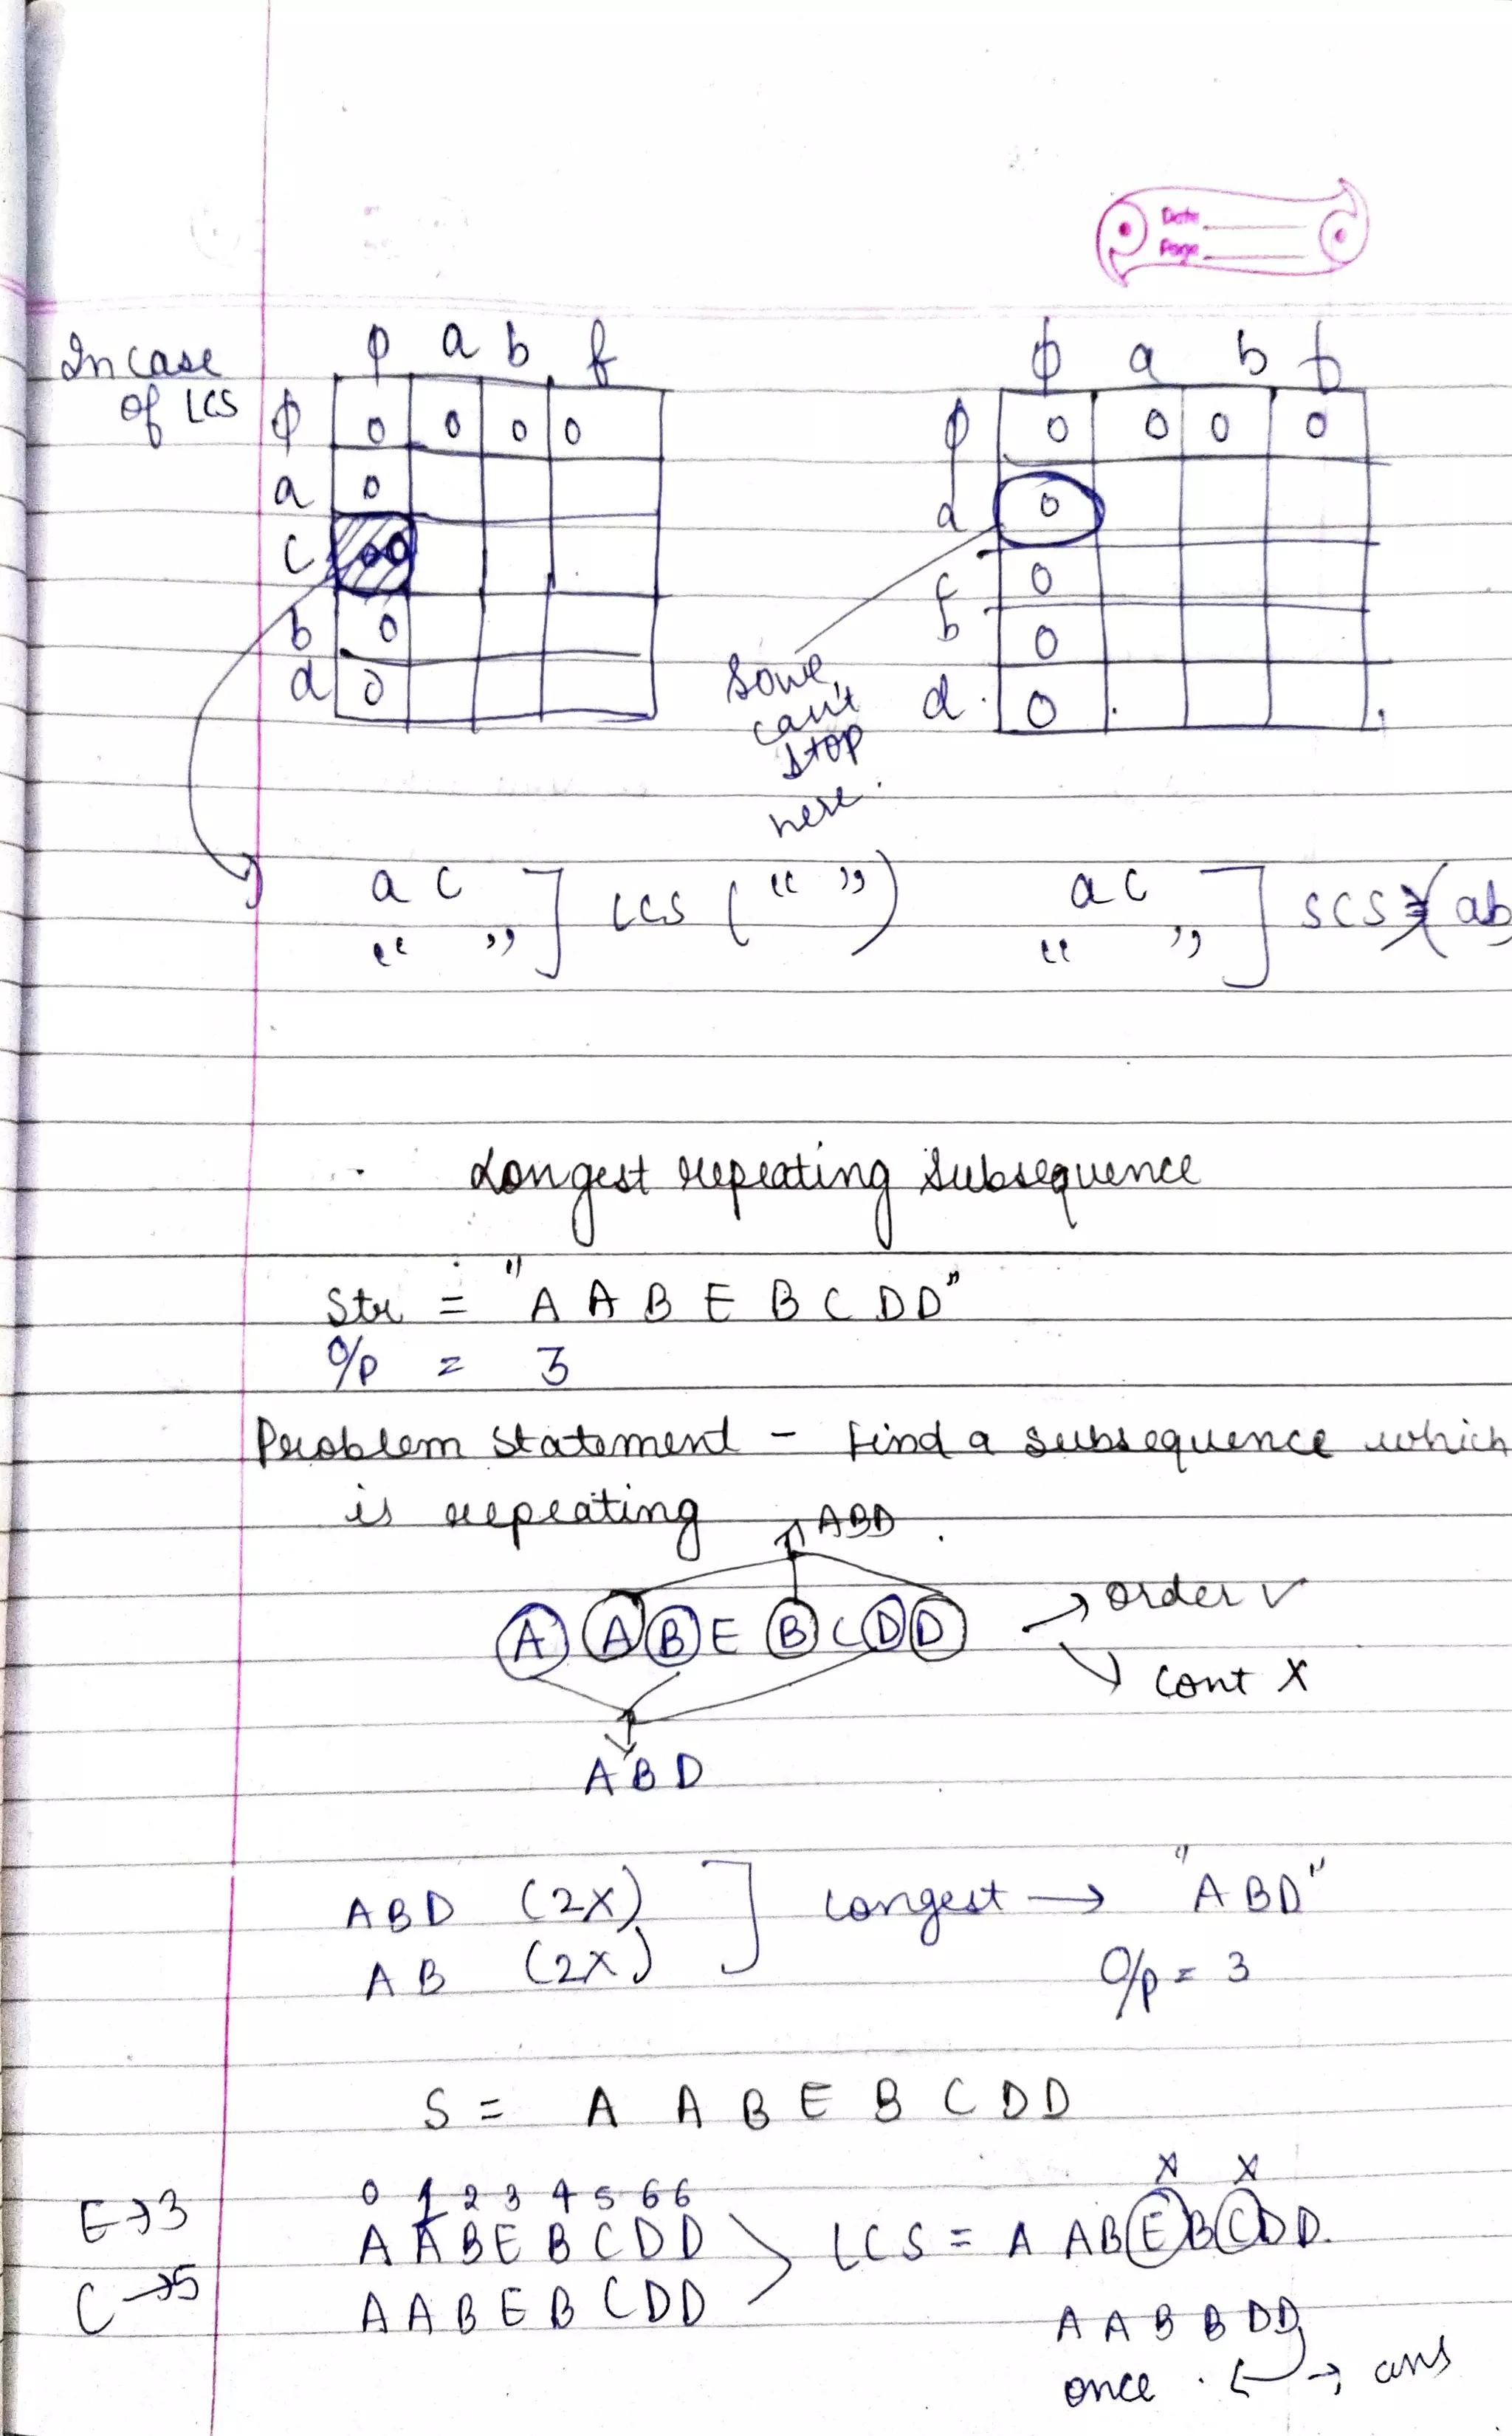 Date
Page
In case
of LCS
φ a b f
φ 0 0 0 0
a 0
c 0
b 0
d 0
φ a b f
φ 0 0 0 0
a 0
c 0
b 0
d 0
can't
stop
here.
a c
“ ”
LCS (“ ”)
ac
“ ”
SCS (ab
Longest repeating Subsequence
Str = "A A B E B C D D"
O/p = 3
Problem statement - Find a subsequence which
is repeating
ABD
A A B E B C D D
order ✓
cont X
A B D
ABD (2x)
AB (2x)
longest → "ABD"
O/p = 3
S = A A B E B C D D
E→3
C→5
0 1 2 3 4 5 6 6
A A B E B C D D
A A B E B C D D
LCS = A A B E B C D D.
X X
A A B B D D
once
→ ans